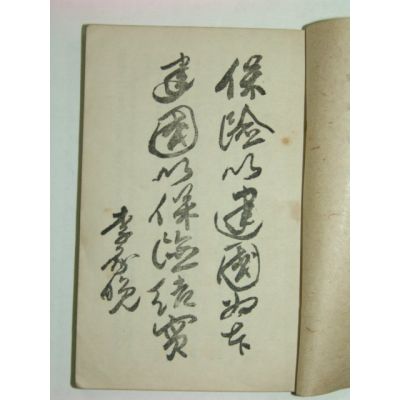 保險以建國為本
建國以保險結實
李承晚